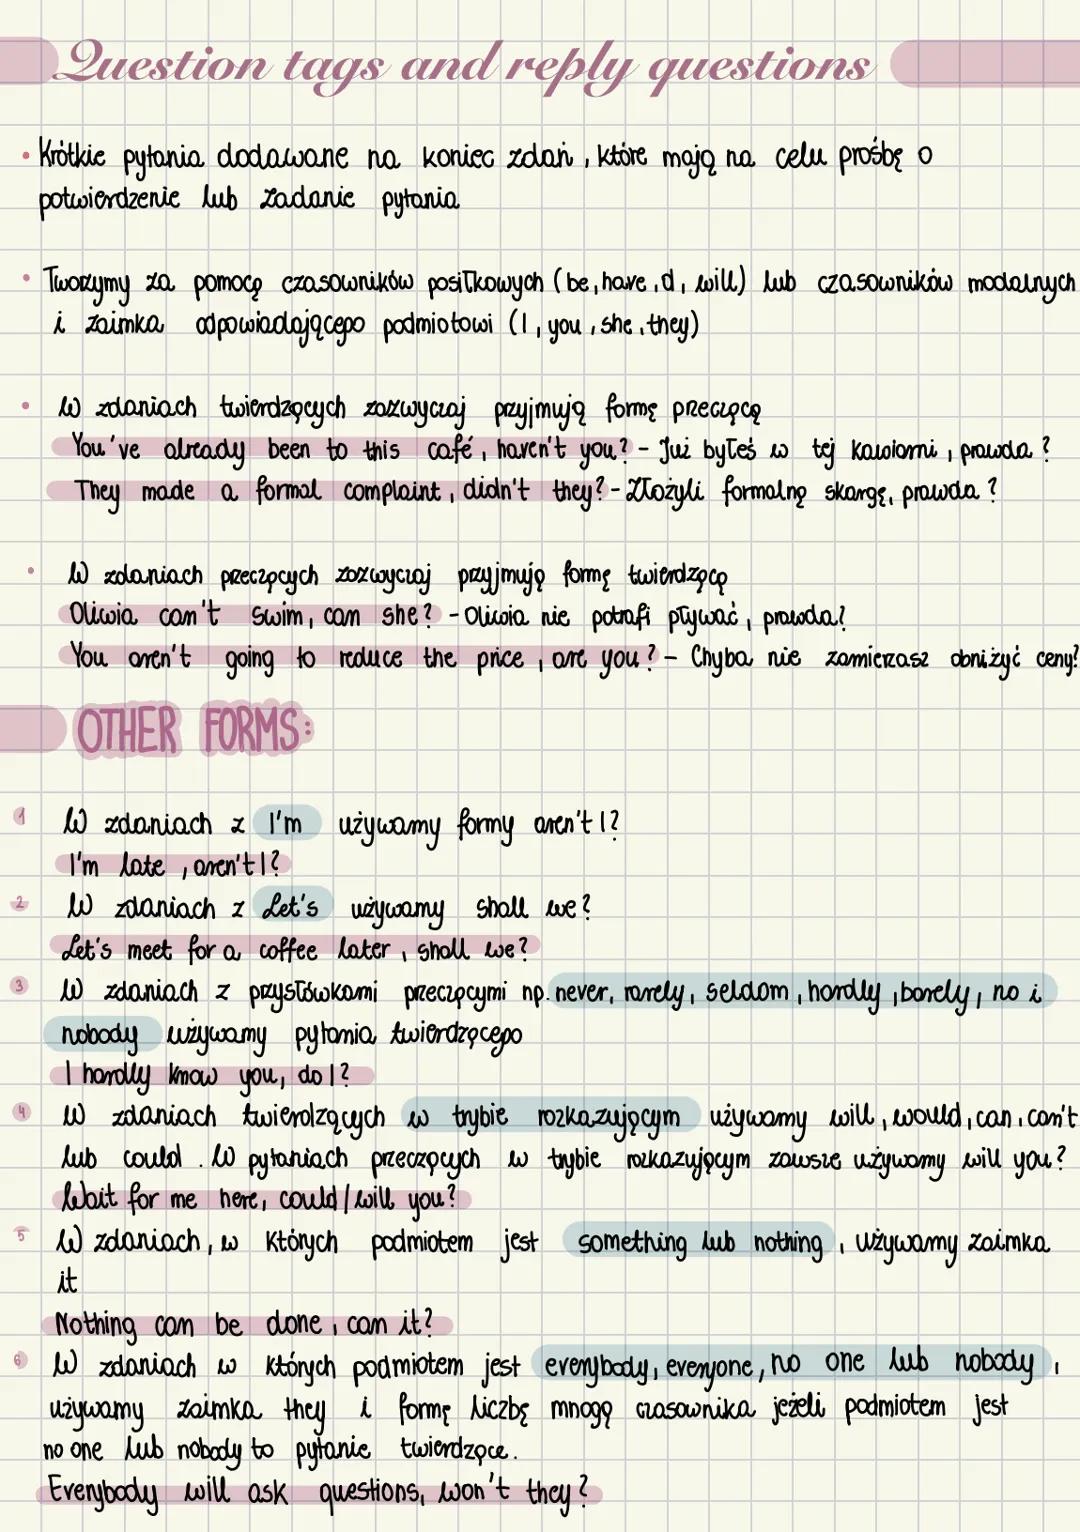 Question tags and reply questions
• Krótkie pytania dodawane na koniec zdań, które mają na celu prośbę o
potwierdzenie lub zadanie pytania
• Tworzymy za pomocą czasowników posiłkowych (be, have, d, will) lub czasowników modalnych
i zaimka odpowiadającego podmiotowi (I, you, she, they)
• W zdaniach twierdzących zazwyczaj przyjmują formę przeczącą
You've already been to this café, haven't you? - Już byłeś w tej kawiarni, prawda?
They made a formal complaint, didn't they? - Złożyli formalną skargę, prawda?
• W zdaniach przeczących zazwyczaj przyjmują formę twierdzącą
Oliwia can't swim, can she? - Oliwia nie potrafi pływać, prawda?
You aren't going to reduce the price, are you? - Chyba nie zamierzasz obniżyć ceny?
OTHER FORMS:
1 W zdaniach z I'm używamy formy aren't I?
I'm late, aren't I?
2 W zdaniach z Let's używamy shall we?
Let's meet for a coffee later, shall we?
3 W zdaniach z przysłówkami przeczącymi np. never, rarely, seldom, hardly, barely, no i
nobody używamy pytania twierdzącego
I hardly know you, do I?
4 W zdaniach twierdzących w trybie rozkazującym używamy will, would, can, can't
lub could. W pytaniach przeczących w trybie rozkazującym zawsze używamy will you?
Wait for me here, could/will you?
5 W zdaniach, w których podmiotem jest something lub nothing, używamy zaimka
it
Nothing can be done, can it?
6 W zdaniach w których podmiotem jest everybody, everyone, no one lub nobody,
używamy zaimka they i formę liczbę mnogą czasownika jeżeli podmiotem jest
no one lub nobody to pytanie twierdzące.
Everybody will ask questions, won't they?